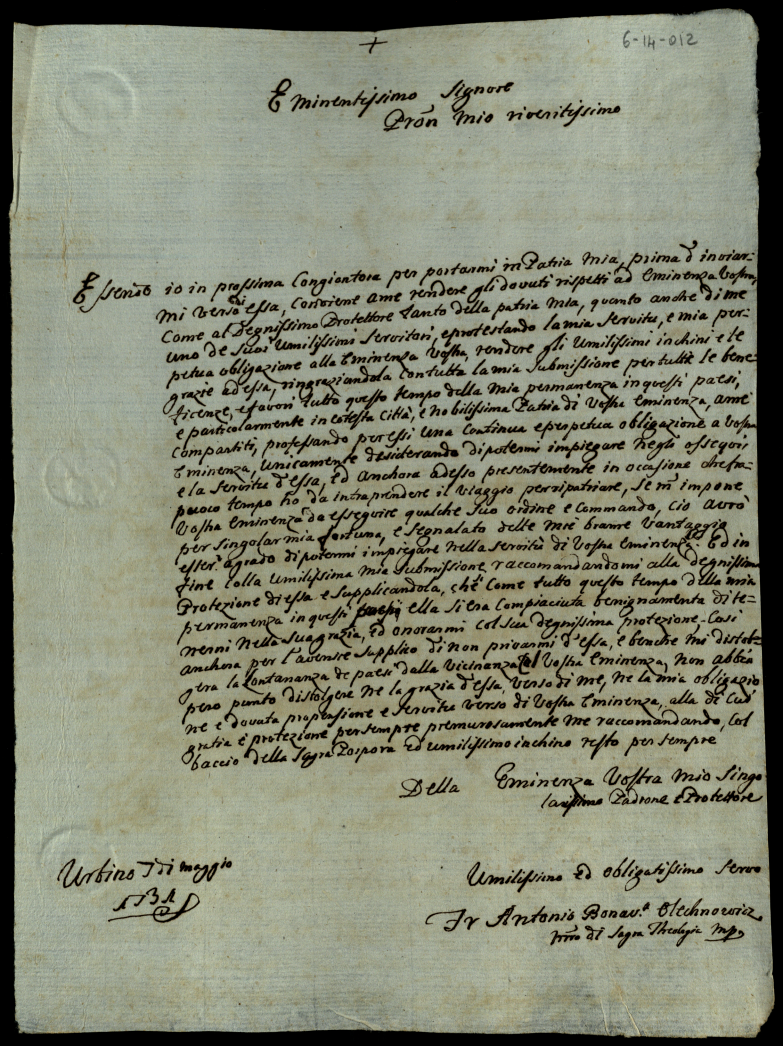 6-14-012
+
Eminentissimo Signore
Prōn mio riveritissimo
Essendo io in prossima Congiontora per portarmi in Patria mia, prima d'inviar-
mi verso di essa, Conviene a me rendere gli dovuti rispetti ad Eminenza Vostra,
Come al Degnissimo Protettore tanto della patria mia, quanto anche di me
uno de Suoi Umilissimi Servitori, e protestando la mia Servitu, e mia per-
petua obligazione alla Eminenza Vostra, rendere gli Umilissimi inchini e le
grazie ad essa, ringraziandola con tutta la mia Submissione per tutte le bene-
ficenze, e favori tutto questo tempo della mia permanenza in questi paesi,
e particolarmente in cotesta Città, e Nobilissima Patria di Vostra Eminenza, a me
Compartiti, professando per essi una Continua e perpetua obligazione a Vostra
Eminenza, unicamente desiderando di potermi impiegare negli ossequii
e la Servitu d'essa, Ed anchora adesso presentemente in occasione che fra
puoco tempo ho da intraprendere il viaggio per ripatriare, se m'impone
Vostra Eminenza da esseguire qualche Suo ordine e Commando, ciò avrò
per singolar mia fortuna, e segnalato delle mie brame Vantaggio
esser a grado di potermi impiegare nella servitù di Vostra Eminenza. Ed in
fine colla Umilissima mia Submissione, raccomandandomi alla degnissima
Protezione di essa e Supplicandola, che Come tutto questo tempo della mia
permanenza in questi paesi ella si era Compiaciuta benignamenta di te-
nermi nella Sua grazia, ed onorarmi col Sua degnissima protezione, Cosi
anchora per l'avenire Supplico di non privarmi d'essa, e benche mi distol-
gera la Lontananza de paesi dalla Vicinanza Vostra Eminenza, non abbia
pero punto distolgere ne la grazia d'essa, verso di me, ne la mia obligazio
ne e dovuta propensione e Servitu verso di Vostra Eminenza, alla di Cui
gratia e protezione per sempre premurosamente me raccomandando, Col
baccio della Sagra Porpora ed umilissimo inchino resto per sempre
Della Eminenza Vostra mio Singo-
larissimo Padrone e Protettore
Urbino 7 di maggio
1731
Umilissimo Ed Obligatissimo Servo
Fr Antonio Bonav.ª Olechnowicz
di Sagra Theologia mp